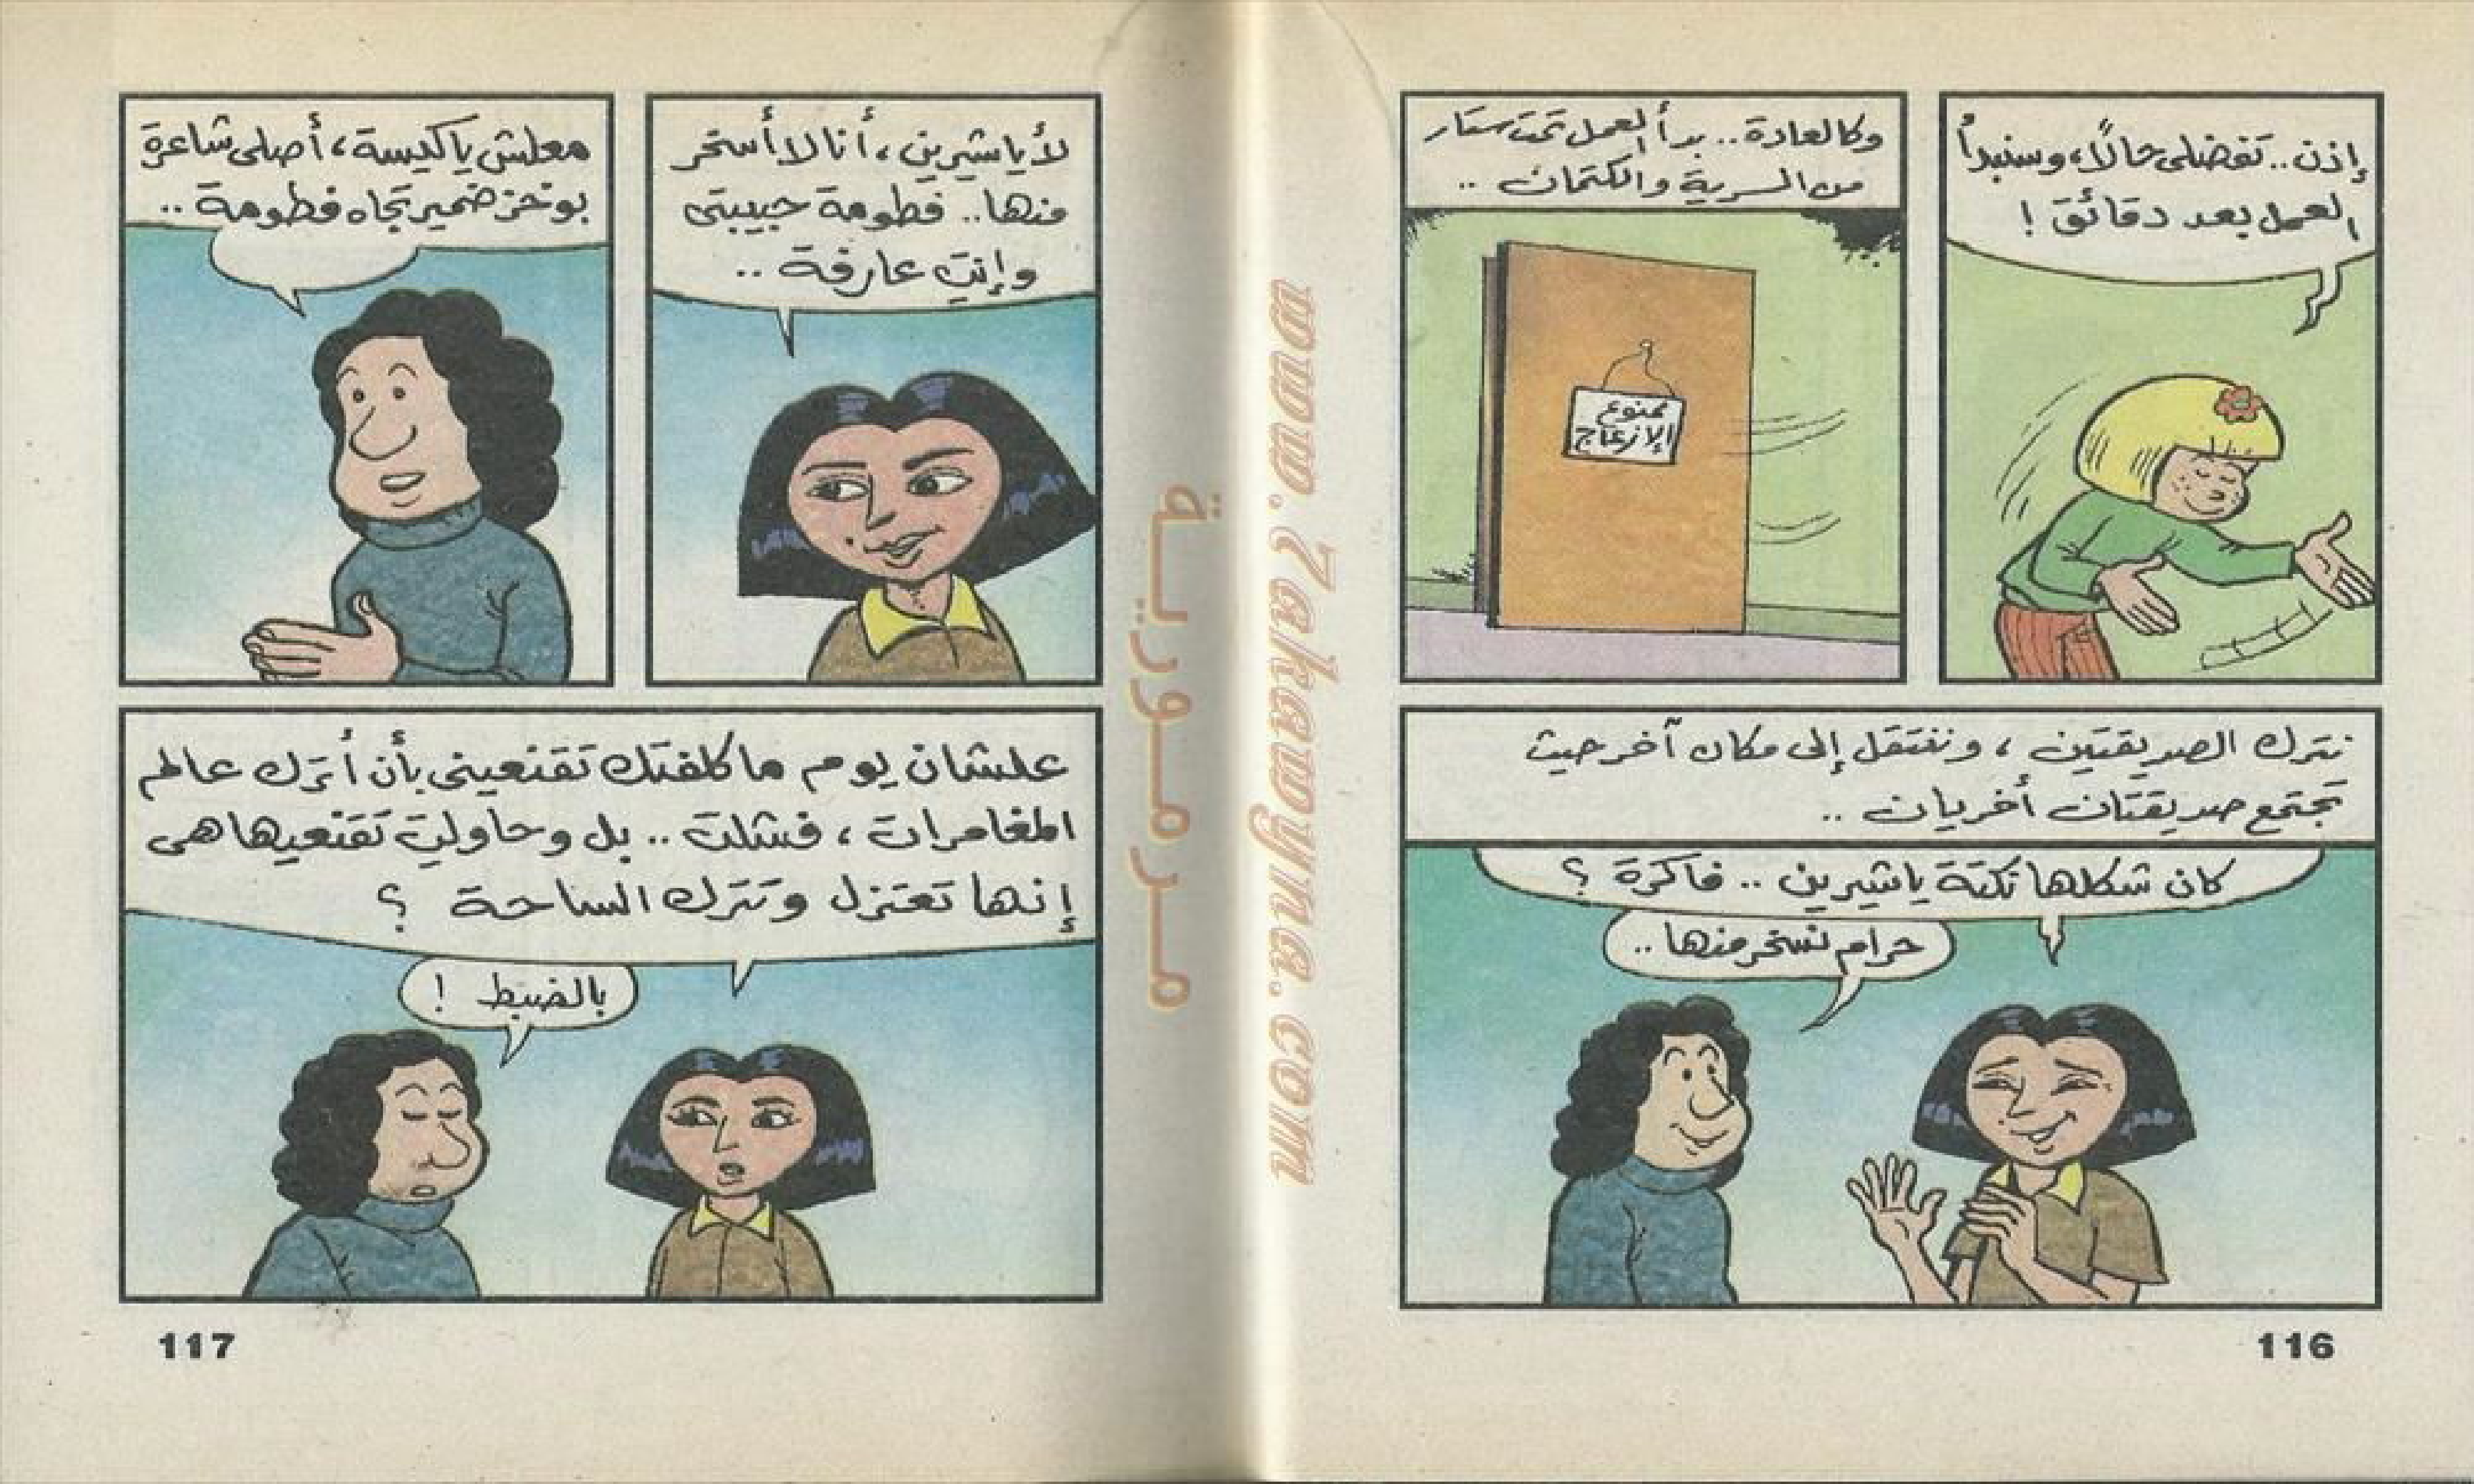 إذن.. تفضلى حالًا، وسنبدأ
العمل بعد دقائق !
وكالعادة.. بدأ العمل تحت ستار
من السرية والكتمان ..
ممنوع
الإزعاج
نترك الصديقتين ، وننتقل إلى مكان آخر حيث
تجتمع صديقتان أخريان ..
كان شكلها نكتة ياشيرين .. فاكرة ؟
حرام نسخر منها ..
116
لأ ياشيرين ، أنا لا أسخر
منها.. فطومة حبيبتى
وإنتِ عارفة ..
معلش ياكيسة ، أصلى شاعرة
بوخز ضمير تجاه فطومة ..
علشان يوم ما كلفتك تقنعينى بأن أترك عالم
المغامرات ، فشلت .. بل وحاولتِ تقنعيها هى
إنها تعتزل وتترك الساحة ؟
بالضبط !
117
مرمورية
www.7akawyna.com